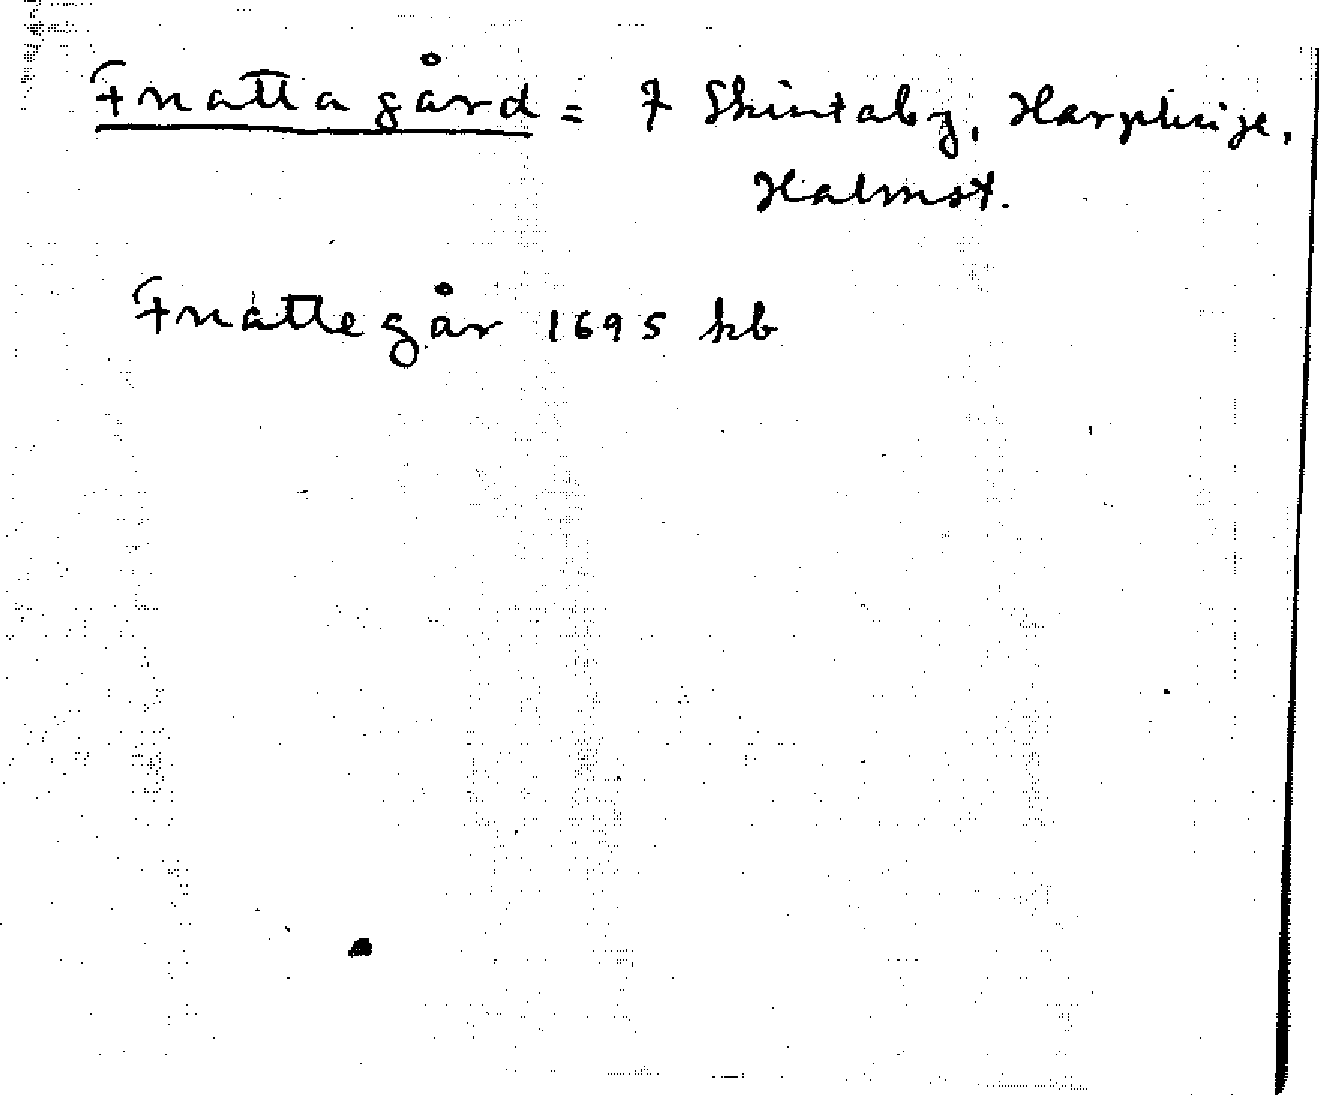 Fnattagård = 7 Skintaby, Harplinge,
Halmst.
Fnattegår 1695 kb